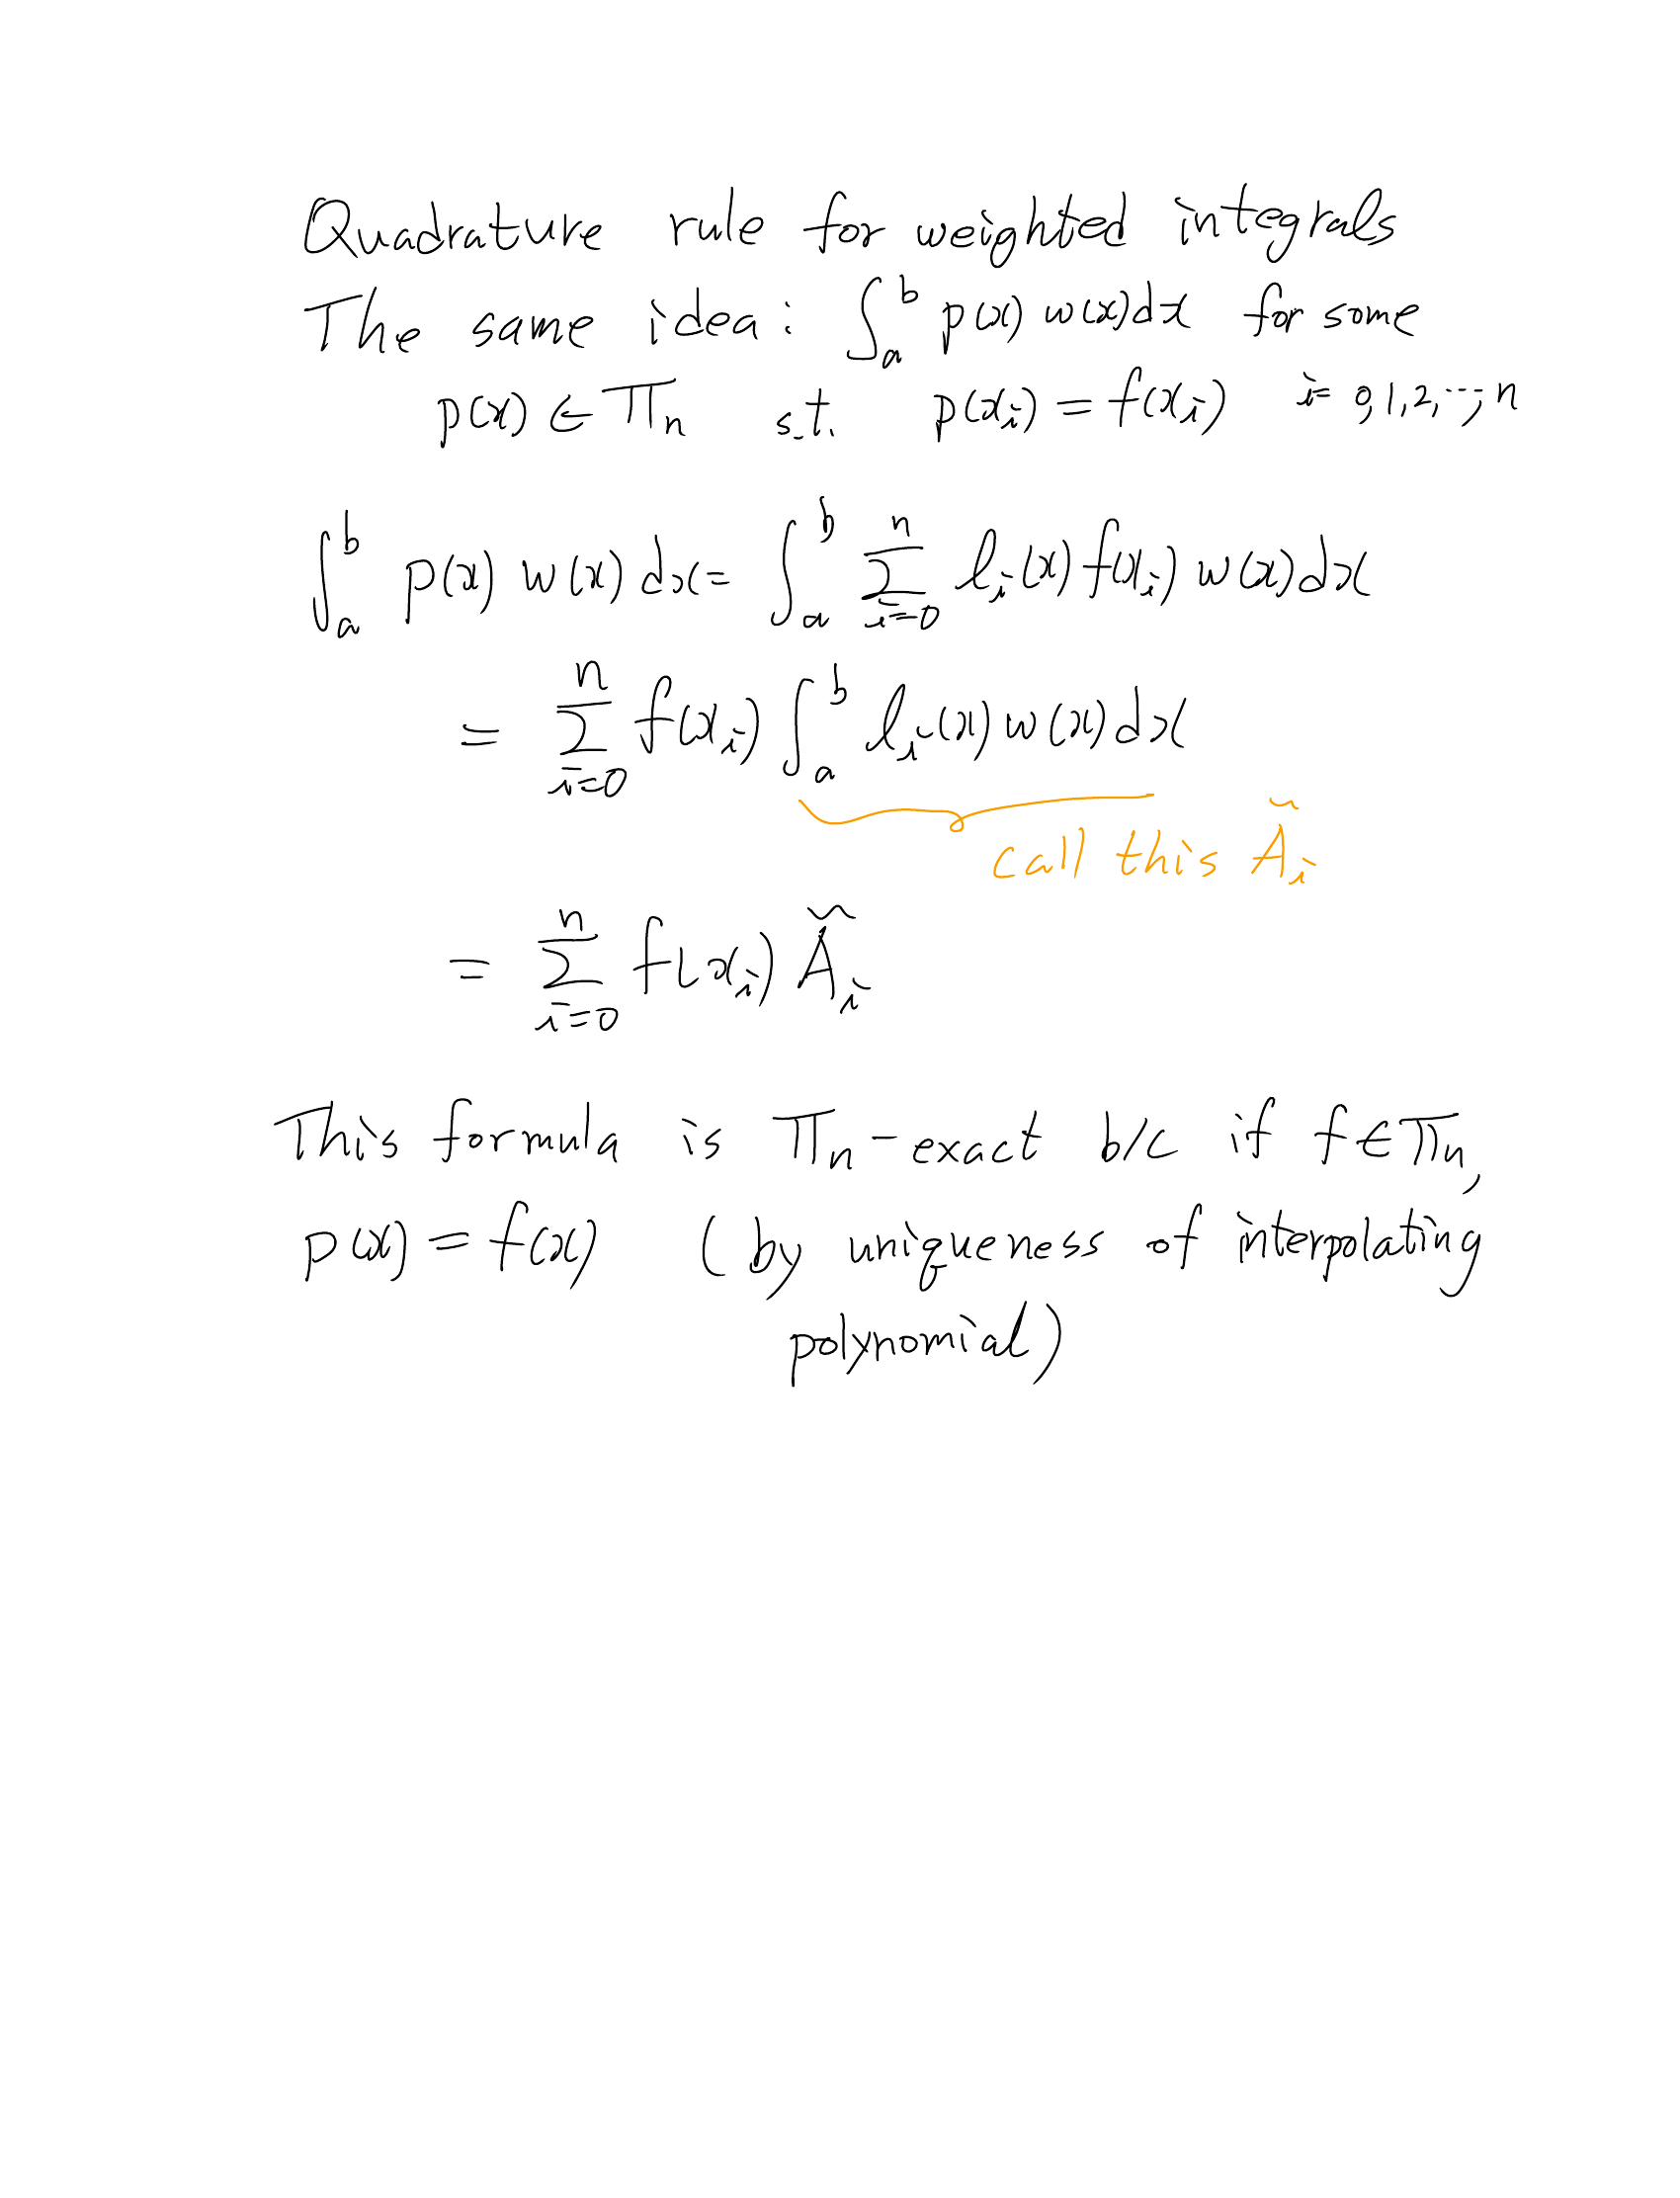 Quadrature rule for weighted integrals
The same idea : ∫_a^b p(x) w(x)dx for some
p(x) ∈ Π_n s.t. p(x_i) = f(x_i) i= 0,1,2,…,n
∫_a^b p(x) w(x) dx = ∫_a^b Σ_{i=0}^n l_i(x) f(x_i) w(x)dx
= Σ_{i=0}^n f(x_i) ∫_a^b l_i(x) w(x)dx
call this Ã_i
= Σ_{i=0}^n f(x_i) Ã_i
This formula is Π_n-exact b/c if f∈Π_n,
p(x) = f(x) (by uniqueness of interpolating
polynomial)